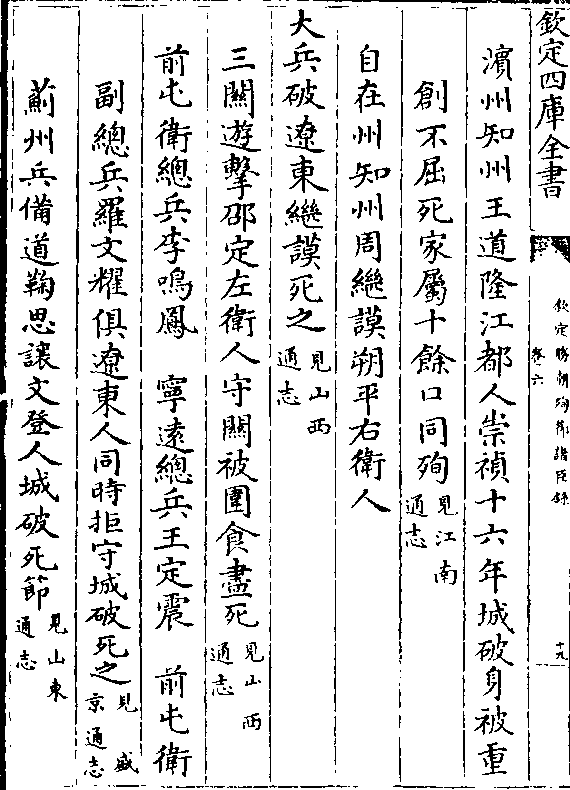 欽定四庫全書
欽定勝朝殉節諸臣錄
卷六
十九
濱州知州王道隆江都人崇禎十六年城破身被重
創不屈死家屬十餘口同殉見江南通志
自在州知州周繼謨朔平右衛人
大兵破遼東繼謨死之見山西通志
三關遊擊邵定左衛人守關被圍食盡死見山西通志
前屯衛總兵李鳴鳳　寧遠總兵王定震　前屯衛
副總兵羅文耀俱遼東人同時拒守城破死之見盛京通志
薊州兵備道鞠思讓文登人城破死節見山東通志